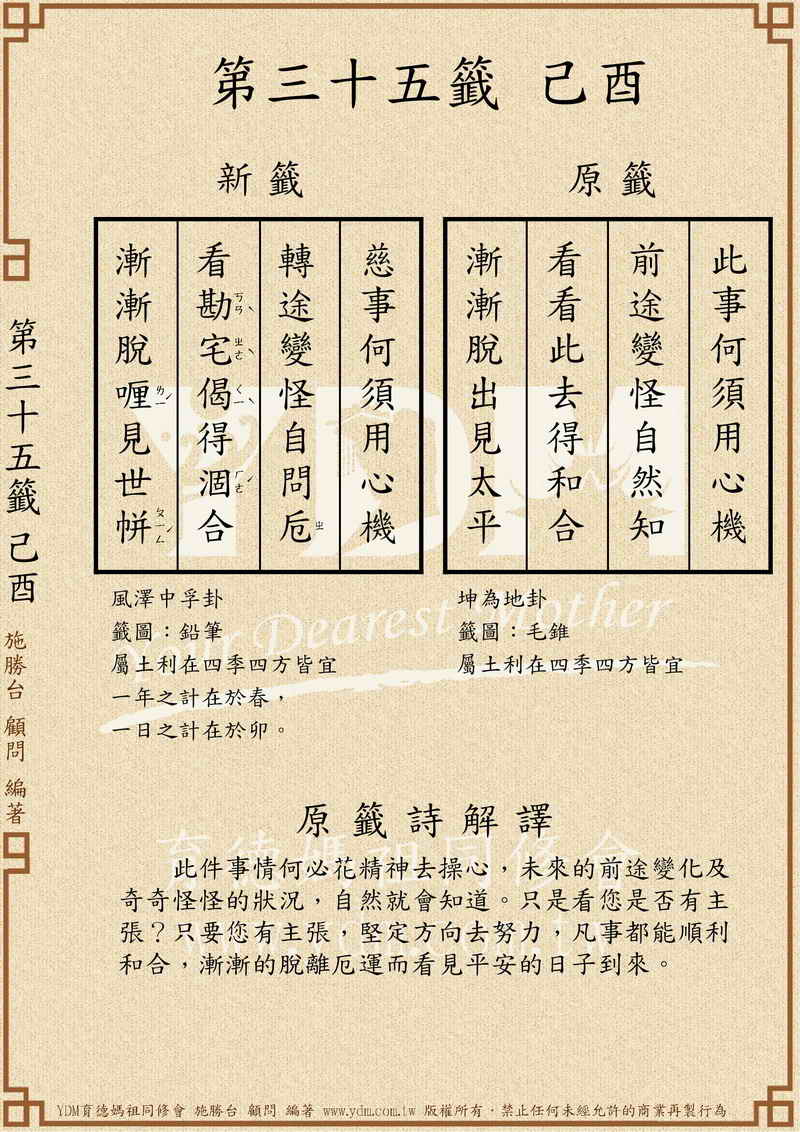 第三十五籤 己酉
原籤
此事何須用心機
前途變怪自然知
看看此去得和合
漸漸脫出見太平
坤為地卦
籤圖：毛錐
屬土利在四季四方皆宜
新籤
慈事何須用心機
轉途變怪自問卮ㄓ
看勘ㄎㄢˋ宅ㄓㄜˋ偈ㄑㄧˋ得涸ㄏㄜˊ合
漸漸脫喱ㄌㄧˊ見世帡ㄆㄧㄥˊ
風澤中孚卦
籤圖：鉛筆
屬土利在四季四方皆宜
一年之計在於春，
一日之計在於卯。
原籤詩解譯
此件事情何必花精神去操心，未來的前途變化及
奇奇怪怪的狀況，自然就會知道。只是看您是否有主
張？只要您有主張，堅定方向去努力，凡事都能順利
和合，漸漸的脫離厄運而看見平安的日子到來。
第三十五籤 己酉 施勝台 顧問 編著
YDM
Your Dearest Mother
育德媽祖同修會
YDM育德媽祖同修會 施勝台 顧問 編著 www.ydm.com.tw 版權所有‧禁止任何未經允許的商業再製行為